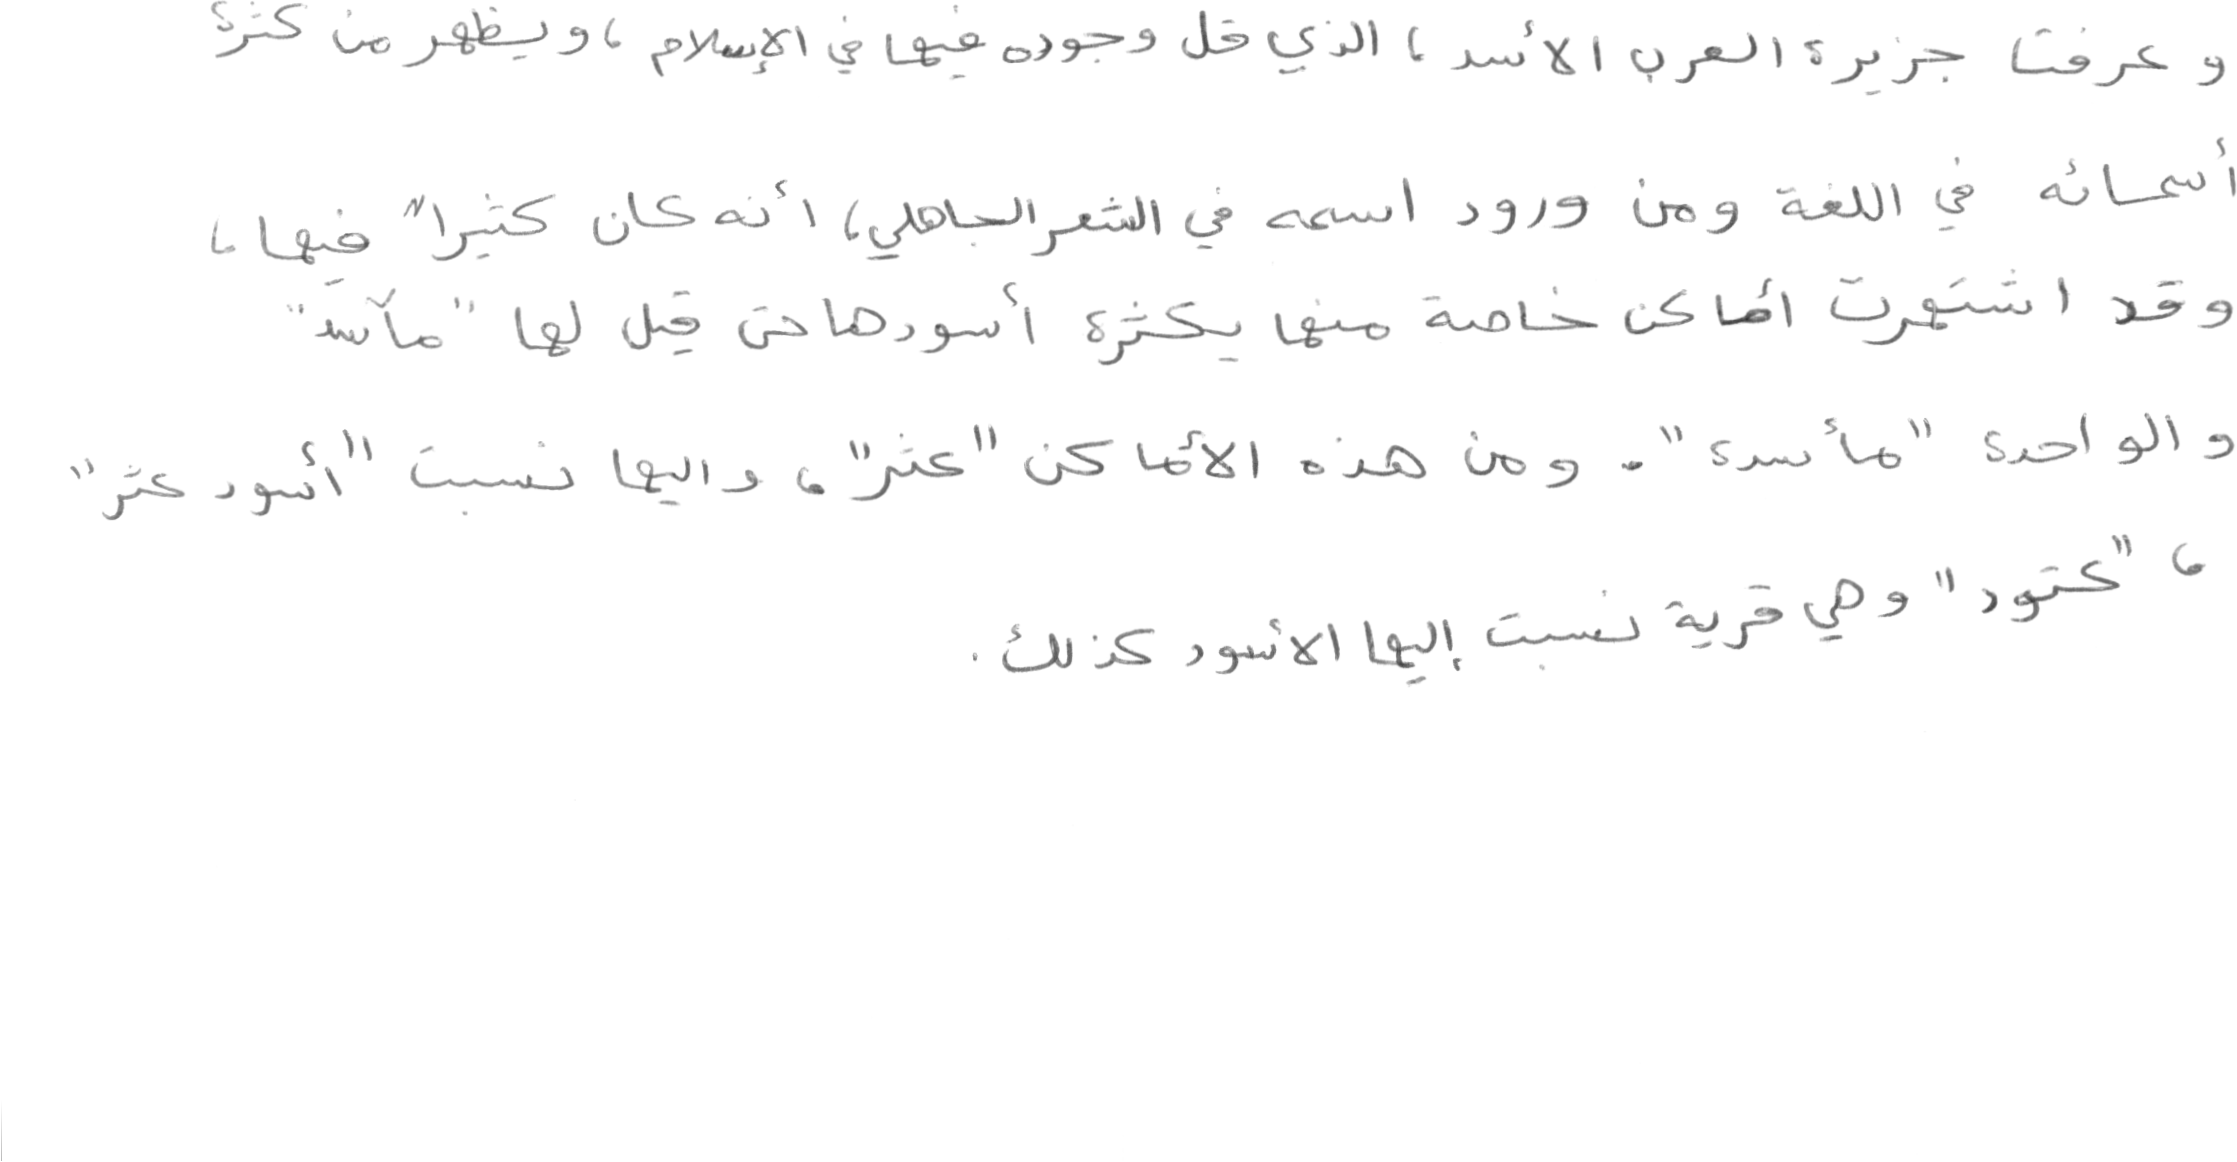 وعرفت جزيرة العرب الأسد، الذي قل وجوده فيها في الإسلام، ويظهر من كثرة
أسمائه في اللغة ومن ورود اسمه في الشعر الجاهلي، أنه كان كثيراً فيها،
وقد اشتهرت أماكن خاصة منها بكثرة أسودها حتى قيل لها "مآسد"
والواحدة "مأسدة". ومن هذه الأماكن "عثر"، واليها نسبت "أسود عثر"
، "عتود" وهي قرية نسبت إليها الأسود كذلك.